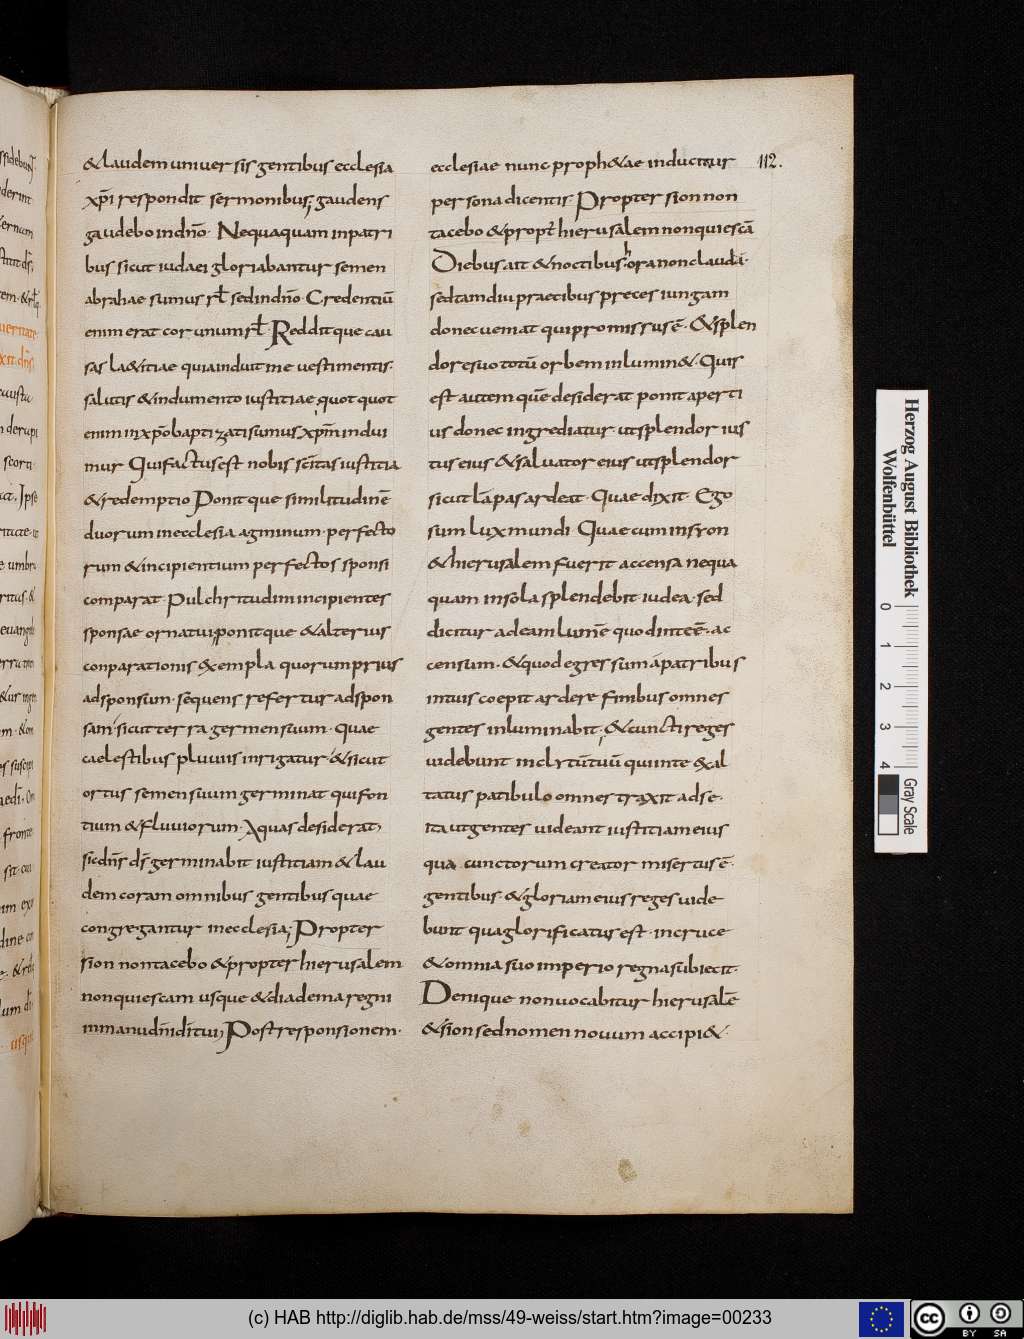 & laudem uniuersis gentibus ecclesia
xp̄i respondit sermonibus; gaudens
gaudebo in dn̄o. Nequaquam in patri
bus sicut iudaei gloriabantur semen
abrahae sumus rł sed in dn̄o. Credentiū
enim erat cor unum rł. Reddit que cau
sas l&itiae quia induit me uestimentis.
salutis & indumento iustitiae, quot quot
enim in xp̄o baptizati sumus xp̄m indui
mur Qui factus est nobis sc̄itas iustitia
& redemptio Ponit que similitudinē
duorum in ecclesia agminum. perfecto
rum & incipientium perfectos sponsi
comparat. Pulchritudini incipientes
sponsae ornatui; ponit que & alterius
conparationis exempla quorum prius
ad sponsum. sequens refertur ad spon
sam. sicut terra germen suum. Quae
caelestibus pluuiis inrigatur. & sicut
ortus semen suum germinat qui fon
tium & fluuiorum. Aquas desiderat,
sic dn̄s ds̄ germinabit iustitiam & lau
dem coram omnibus gentibus quae
congregantur in ecclesia; Propter
sion non tacebo & propter hierusalem
non quiescam usque & diadema regni
in manu dn̄i dī tui, Post responsionem.
ecclesiae nunc proph&ae inducitur
persona dicentis. Propter sion non
tacebo & propt̄ hierusalem non quiescā
Diebus ait & noctibus. hora non claudā.
sed tamdiu praecibus preces iungam
donec ueniat qui promissus ē. & splen
dore suo totū orbem inlumin&. Quis
est autem quē desiderat ponit aperti
us donec ingrediatur ut splendor ius
tus eius & saluator eius ut splendor
sicut lāpas ardeat. Quae dixit. Ego
sum lux mundi Quae cum in sion
& hierusalem fuerit accensa nequa
quam in sola splendebit iudea. sed
dicitur ad eam lumē quod in te ē. ac
censum. & quod egressum a patribus
intus coepit ardere finibus omnes
gentes inluminabit. & cuncti reges
uidebunt inclytū tuū qui in te exal
tatus patibulo omnes traxit ad se.
ita ut gentes uideant iustitiam eius
qua cunctorum creator misertus ē.
gentibus. & gloriam eius reges uide
bunt qua glorificatus est. in cruce
& omnia suo imperio regna subiecit.
Denique non uocabitur hierusalē
& sion sed nomen nouum accipi&
112.
Herzog August Bibliothek
Wolfenbüttel
0 1 2 3 4
Gray Scale
(c) HAB http://diglib.hab.de/mss/49-weiss/start.htm?image=00233
cc BY SA